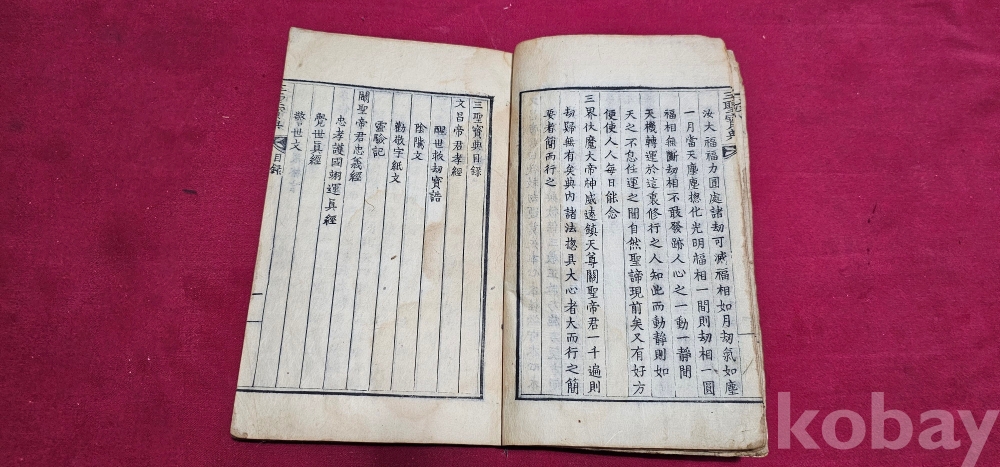 三聖寶典
汝大福福力圓處諸劫可滅福相如月劫氣如塵
一月當天塵塵揔化光明福相一間則劫相一圓
福相無斷劫相不敢發跡人心之一動一靜間
天機轉運於這裏修行之人知此而動靜則如
天之不息任運之間自然聖諦現前矣又有好方
便使人人每日能念
三界伏魔大帝神威遠鎮天尊關聖帝君一千遍則
劫歸無有矣典內諸法揔具大心者大而行之簡
要者簡而行之
三聖寶典目録
文昌帝君孝經
醒世救劫寶誥
陰騭文
勸敬字紙文
靈驗記
關聖帝君忠義經
忠孝護國翊運眞經
覺世眞經
警世文
三聖寶典
目録
一
kobay